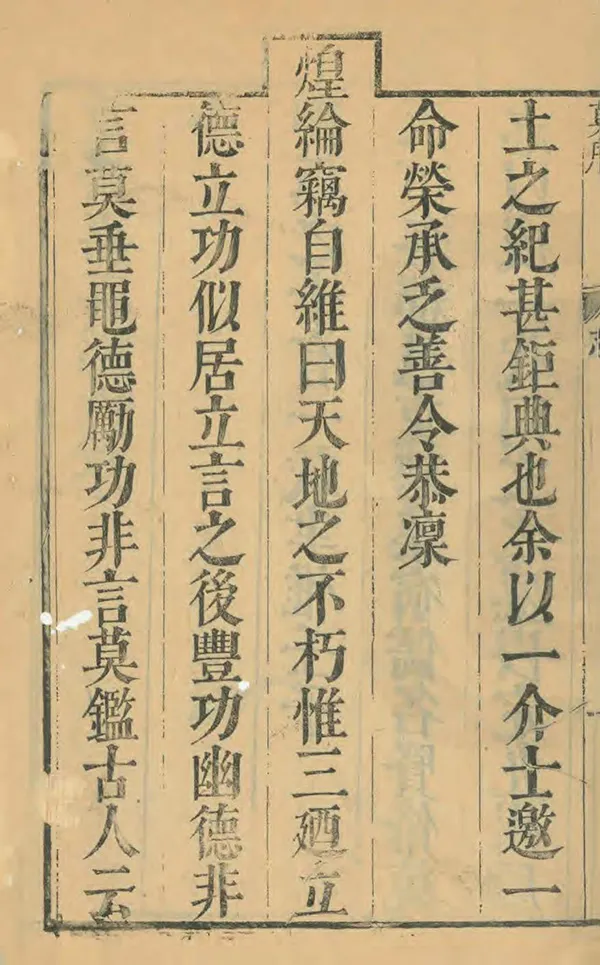 土之紀甚鉅典也余以一介士邀一
命榮承乏善令恭凜
煌綸竊自維曰天地之不朽惟三廼立
德立功似居立言之後豐功幽德非
言莫垂黽德勵功非言莫鑑古人云